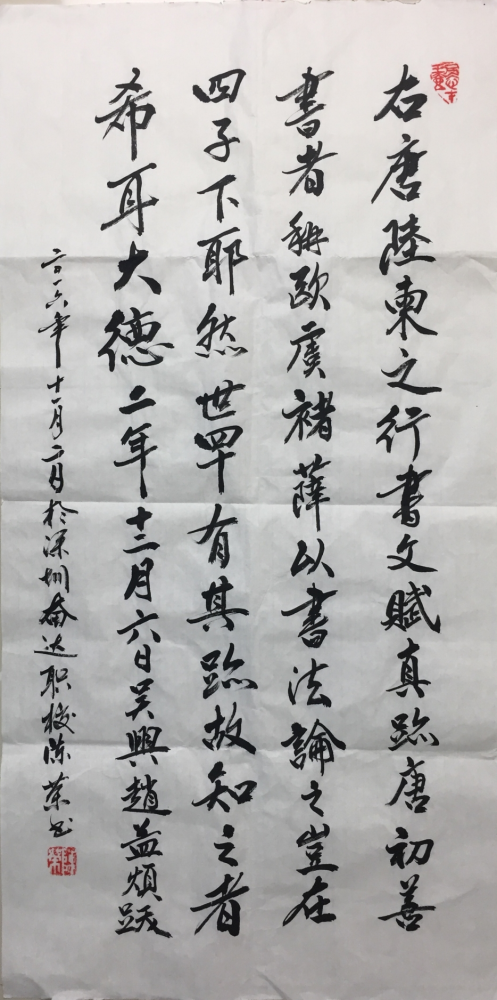 右唐陸柬之行書文賦真跡唐初善
書者稱歐虞褚薛以書法論之豈在
四子下耶然世罕有其跡故知之者
希耳大德二年十二月六日吴興趙孟頫跋
二〇一六年十一月二日於深圳奋达职校陈荣书